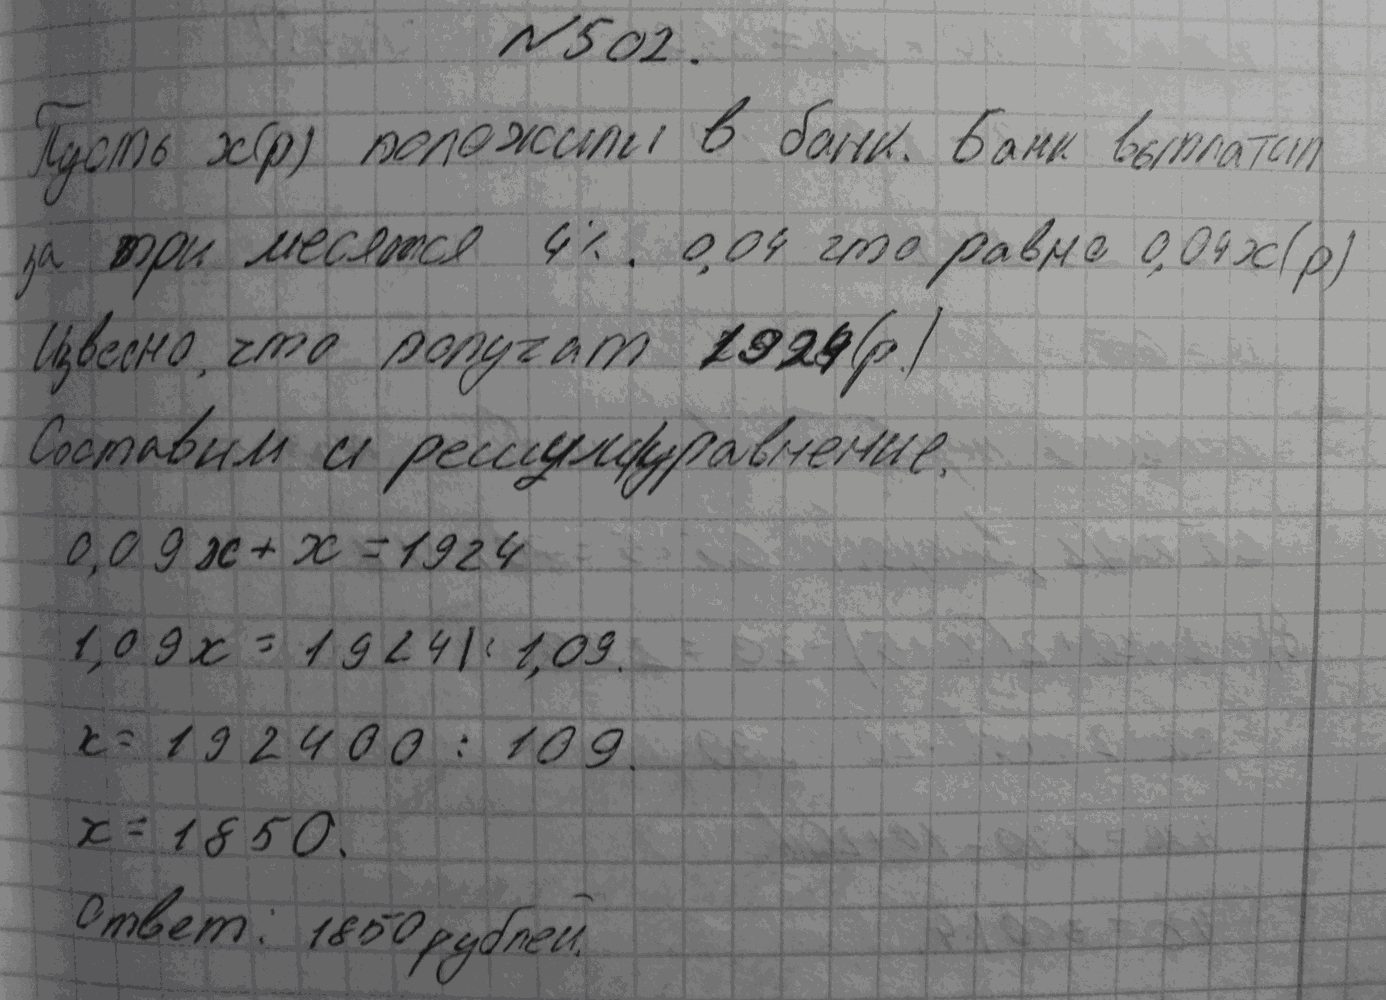 N502.
Пусть x(р) положили в банк. Банк выплатит
за три месяся 4%. 0,04 что равно 0,04x(р)
Извесно, что получат 1924(р.)
Составим и решу уравнение.
0,09x+x=1924
1,09x=1924|:1,09.
x=192400:109.
x=1850.
Ответ: 1850рублей.